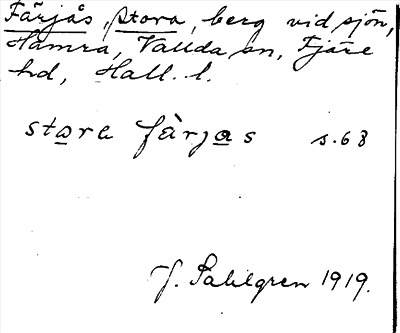 Färjås, stora, berg vid sjön,
Hamra, Vallda sn, Fjäre
hd, Hall. l.
stora färjas s. 68
J. Sahlgren 1919.